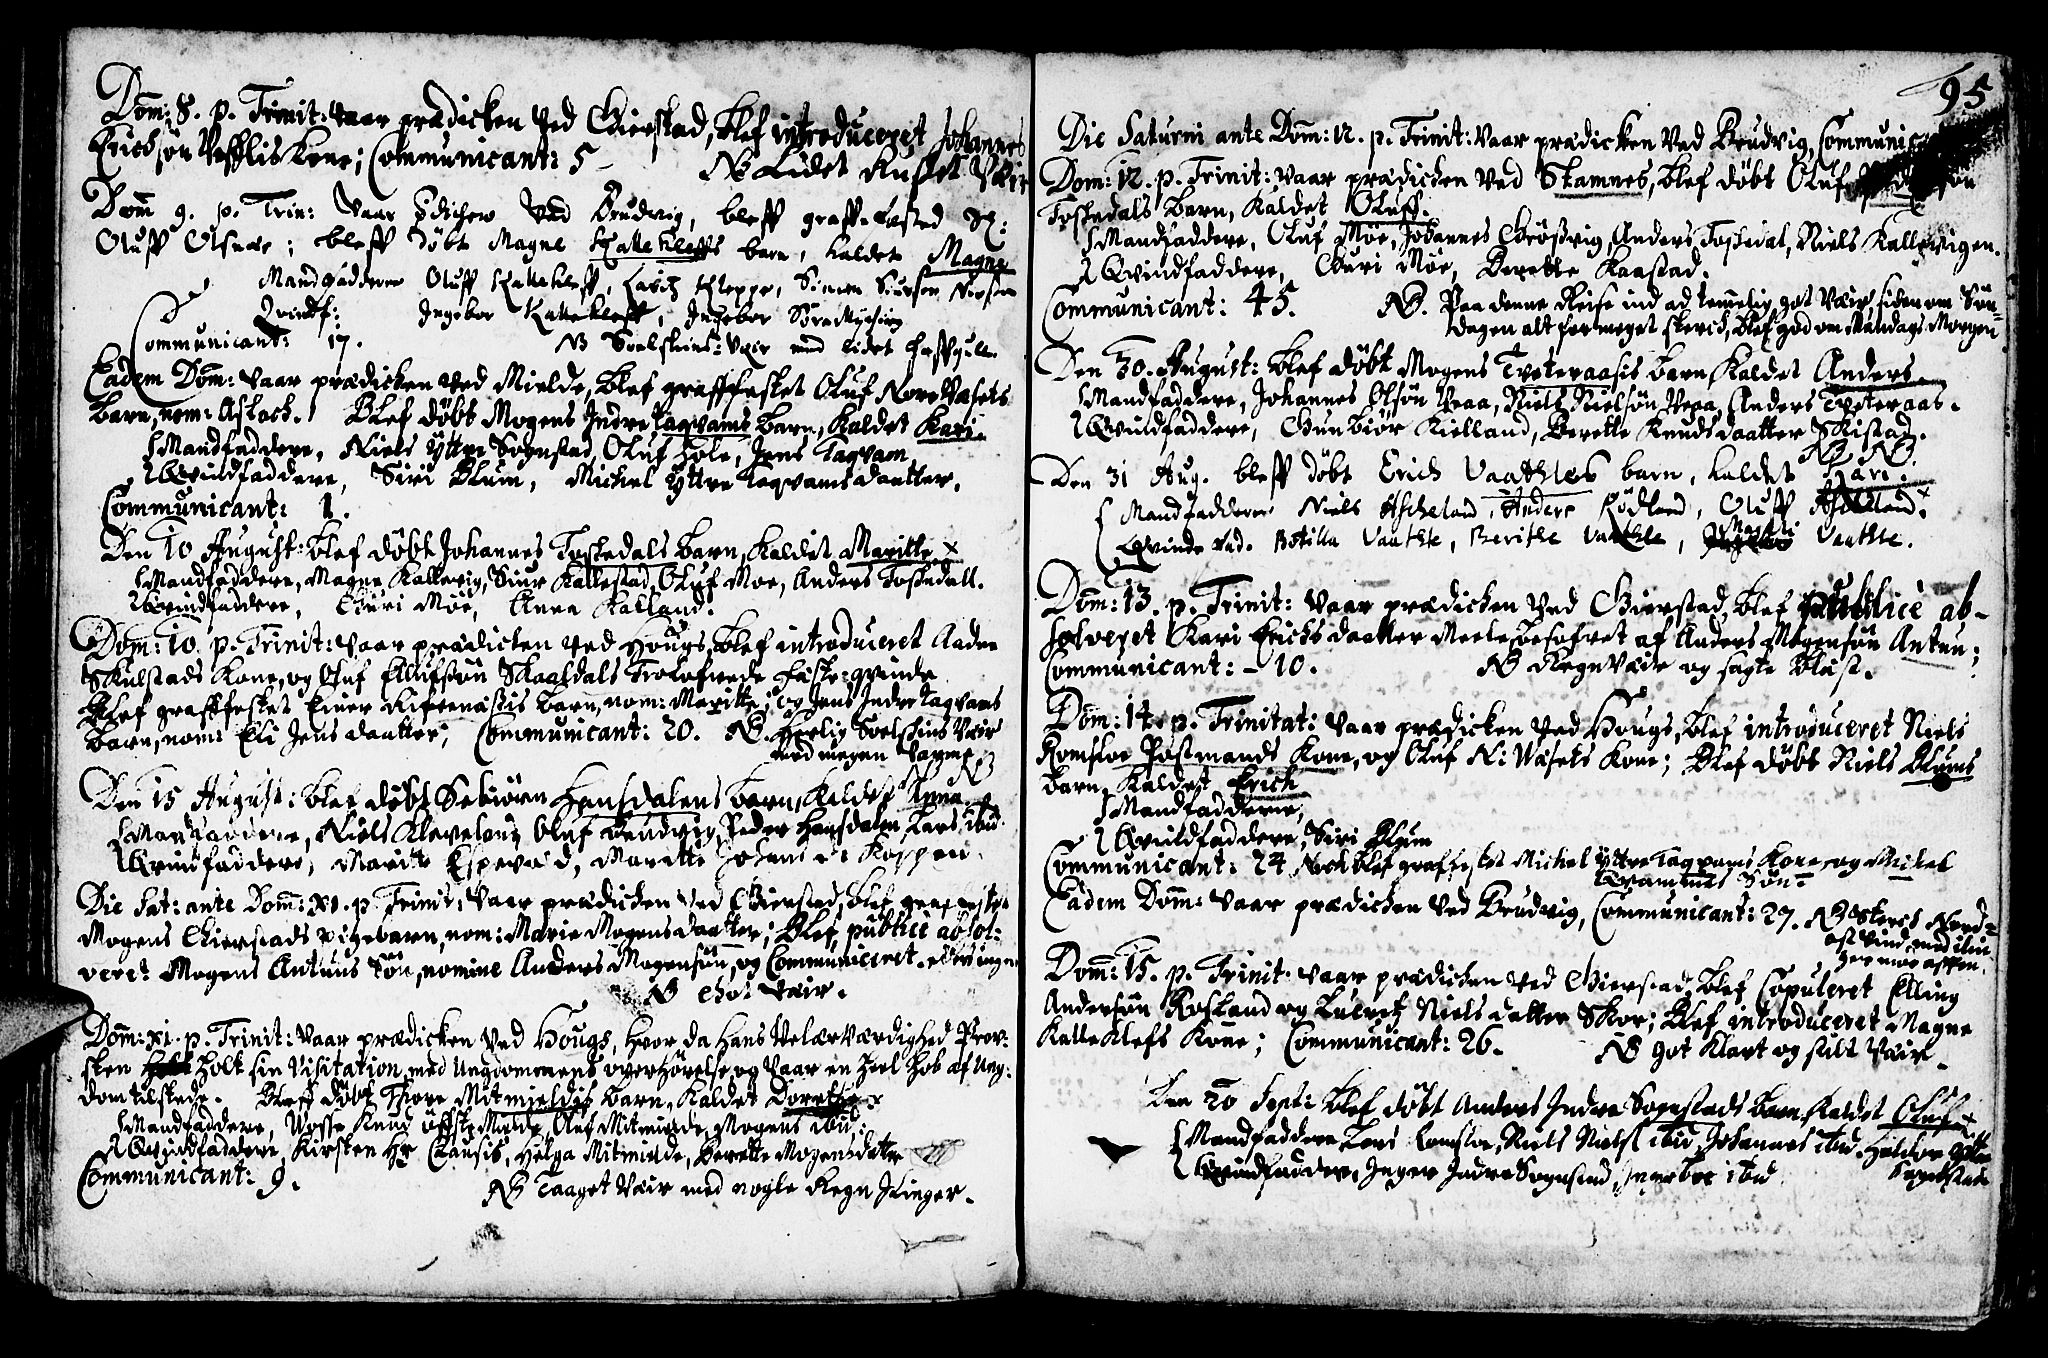 Dom: 8. p. Trinit: vaar prædicken ved Gierstad, blef introduceret Johannes
Erichsøn Veflis Kone; Communicant: 5 NB Lidet Kuflet Væir
Dom 9. p. Trin: vaar Pdichen ved Brudvig, bleff graff-fæsted
Oluff Olsnes; bleff døbt Magne Kalleklefs barn, kaldet Magne
Mandfaddere Oluff Kalleklef, Laritz Kleppe, Simen
Qvindf: Ingebor Kalleklef, Ingebor
Communicant: 17. NB Soelskins-Væir med lidet
Eadem Dom: vaar prædicken ved Mielde, Blef graffæstet Oluf Nore Vasets
barn, nom: Aslach. Blef døbt Mogens Indre Taqvams barn, kaldet Kari.
Mandfaddere, Niels Yttre Sognstad, Oluf Hole, Jens Taqvam
Qvindfaddere, Siri Blum, Michel Yttre Taqvams daatter.
Communicant: 1.
Den 10 August: blef døbt Johannes Toskedals barn, kaldet Maritte
Mandfaddere, Magne Kallevig, Siur Kallestad, Oluf Moe, Anders Toskedall.
Qvindfaddere, Guri Møe, Anna Kalland.
Dom: 10. p. Trinit: vaar prædicken ved Hougs, blef introduceret Aaden
Skulstads Kone, og Oluf Ellufsøn Skaafdals Trolofvede Fæste-qvinde
Blef graffæstet Einer Rifvenæsis barn, nom: Maritte; og Jens Indre Taqvams
barn, nom: Eli Jens daatter; Communicant: 20. NB. Herlig Soelskins Væir
med megen Varme
Den 15 August: blef døbt Sebiørn Hansdalens barn, kaldet Anna
Mandfaddere, Niels Kleveland, Oluf Brudvig, Peder Hansdalen, Lars ibid
Qvindfaddere, Marite Espevold, Marette Johans Koppen
Die Sat: ante Dom: XI. p. Trinit: vaar prædicken ved Gierstad, blef graffæstet
Mogens Gierstads pigebarn, nom: Marie Mogensdaatter; Blef publicè absol-
veret Mogens Antuns Søn, nomine Anders Mogensøn, og Communiceret. ellers ingen
NB Got Væir.
Dom: XI. p. Trinit: vaar prædicken ved Hougs, hvor da Hans Velærværdighed Prov-
sten holt sin Visitation, med Ungdommens overhørelse og vaar en heel hob af Ung-
dom tilstede. Bleff døbt Thore Mitmieldis barn, kaldet Dorethe
Mandfaddere, Usse Knud Øfste Mielde, Oluf Mitmielde, Mogens ibid:
Qvindfaddere, Kirsten Hr Clausis, Helga Mitmielde, Berette Mogensdatter
Communicant: 9. NB Taaget Væir med nogle Regn Ilinger.
95
Die Saturni ante Dom: 12. p. Trinit: vaar prædicken ved Brudvig, Communic
Dom: 12. p. Trinit: vaar prædichen ved Stamnes, blef døbt Oluf søn
Toskedals barn, kaldet Oluff.
Mandfaddere, Oluf Møe, Johannes Grøsvig, Anders Toskedal, Niels Kallevigen.
Qvindfaddere, Guri Møe, Berette Kaastad.
Communicant: 45. NB. Paa denne Reise ind ad temmelig got Væir, siden om Søn-
dagen alt for meget sterch, blef god om Mandags Morgen
Den 30. August: blef døbt Mogens Tveteraasis barn, kaldet Anders.
Mandfaddere, Johannes Olsøn Veaa, Niels Nielsøn Veaa, Anders Tveteraas.
Qvindfaddere, Gunbiør Kielland, Berette Knudsdaatter Skistad.
NB NB.
Den 31 Aug. bleff døbt Erich Vaathles barn, kaldet Kari.
Mandfaddere Niels Ascheland, Anders Rødland, Oluff Ascheland.
Qvinde fad. Botilla Vaathle, Berithe Vaathle, Vaathle.
Dom: 13. p. Trinit: vaar prædichen ved Gierstad, blef publicè ab-
solveret Kari Erichsdaatter Meele besofvet af Anders Mogensøn Antun;
Communicant: - 10. NB Regn Væir og sagte Blæst.
Dom: 14. p. Trinitat: vaar prædichen ved Hougs, blef introduceret Niels
Romsloe Postmands Kone, og Oluf N: Wasets Kone; Blef døbt Niels Blums
barn, kaldet Erich
Mandfaddere,
Qvindfaddere, Siri Blum
Communicant: 24 Noch blef graffestet Michel Yttre Taqvams Kone, og Mikel
Qvammes Søn
Eadem Dom: vaar prædichen ved Brudvig, Communicant: 27. NB Sterch Nord-
ost Vind med
Dom: 15. p. Trinit: vaar prædichen ved Gierstad, blef Copuleret Elling
Andersøn Rosland og Lucretz Niels datter Skor; Blef introduceret Magne
Kalleklefs Kone; Communicant: 26. NB got Klart og stilt Væir.
Den 20 Sept: blef døbt Anders Indre Sognstads barn, kaldet Oluf
Mandfaddere Lars Romsloe, Niels Niels: ibid, Johannes ibid. Haldor Yttre
Qvindfaddere, Inger Indre Sognstad, ibid Sognstad